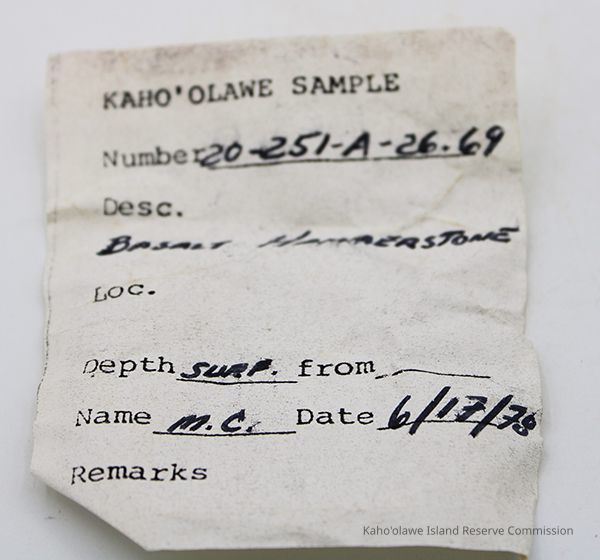 KAHO'OLAWE SAMPLE
Number 20-251-A-26.69
Desc.
BASALT HAMMERSTONE
Loc.
Depth SURF. from
Name M.C. Date 6/17/78
Remarks
Kaho'olawe Island Reserve Commission